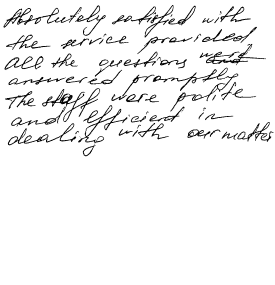 Absolutely satisfied with
the service provided
All the questions were
answered promptly
The staff were polite
and efficient in
dealing with our matter